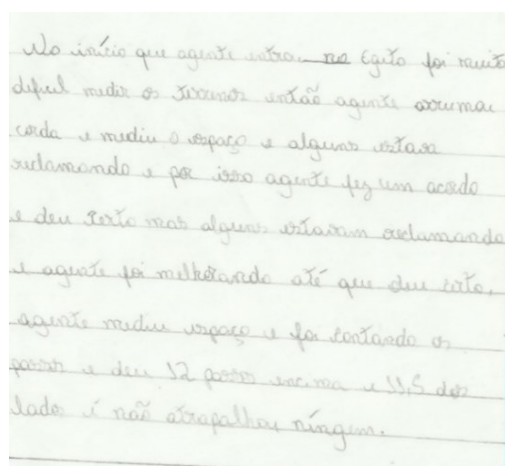 No início que agente entrou no Egito foi muito
difícil medir os terrenos então agente arrumou
corda e mediu o espaço e alguns estava
reclamando e por isso agente fez um acordo
e deu serto mas alguns estavam reclamando
e agente foi melhorando até que deu certo,
agente mediu espaço e foi contando os
passos e deu 12 passos encima e 11,5 dos
lados i não atrapalhou ningem.